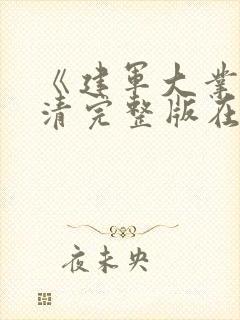 《建军大业
清完整版在
夜未央